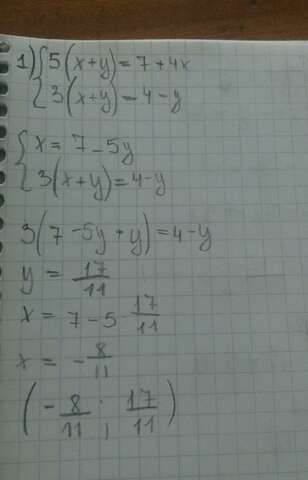 1) { 5(x+y) = 7 + 4x
3(x+y) = 4 - y
{ x = 7 - 5y
3(x+y) = 4 - y
3(7 - 5y + y) = 4 - y
y = 17/11
x = 7 - 5 · 17/11
x = - 8/11
(- 8/11 ; 17/11)